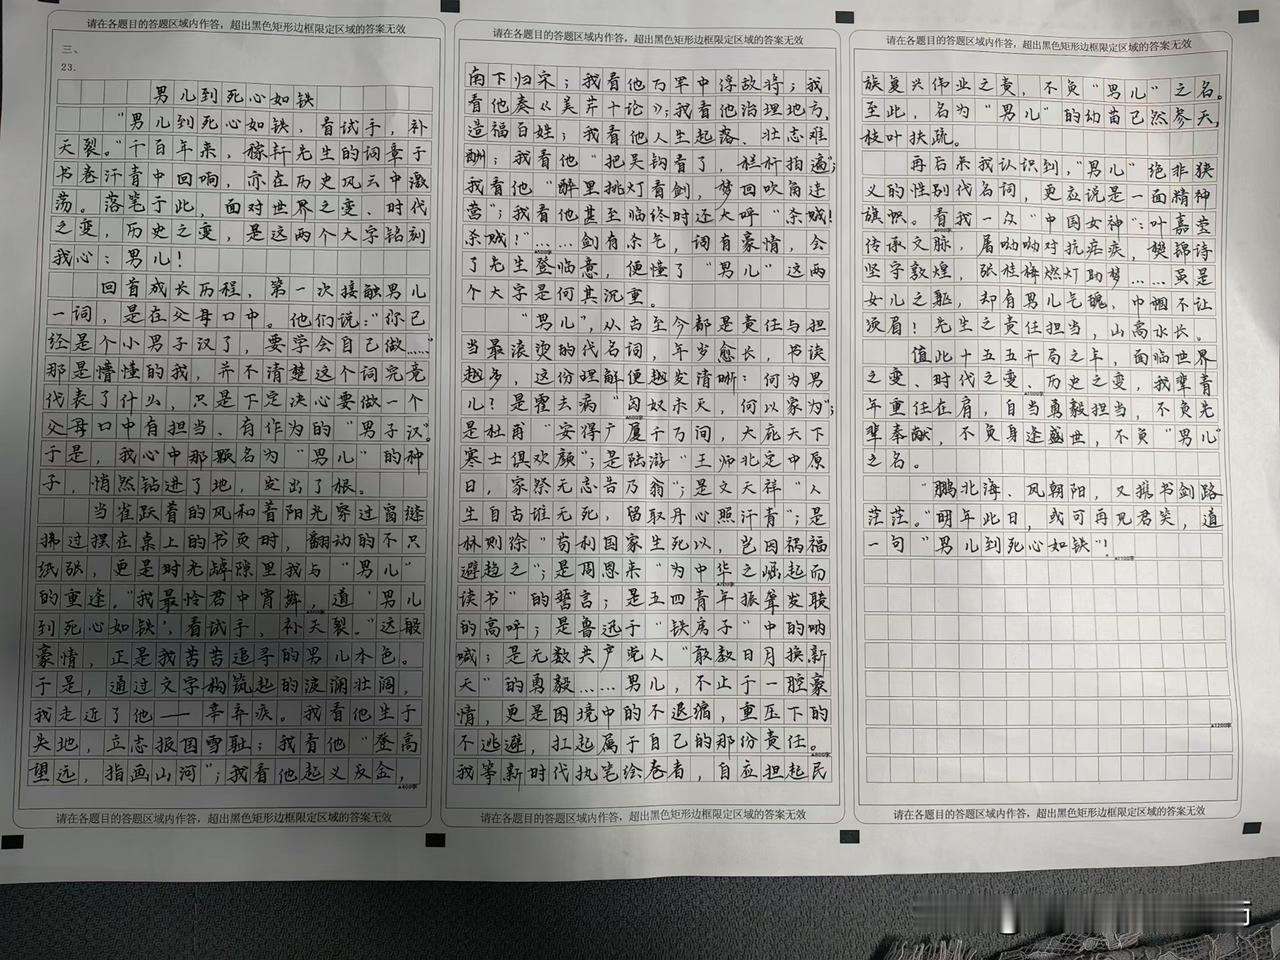 请在各题目的答题区域内作答，超出黑色矩形边框限定区域的答案无效
三、
23.
男儿到死心如铁
"男儿到死心如铁，看试手，补
天裂。"千百年来，稼轩先生的词章于
书卷汗青中回响，亦在历史风云中激
荡。落笔于此，面对世界之变、时代
之变，历史之变，是这两个大字铭刻
我心：男儿！
回首成长历程，第一次接触男儿
一词，是在父母口中。他们说："你已
经是个小男子汉了，要学会自己做……"
那是懵懂的我，并不清楚这个词究竟
代表了什么，只是下定决心要做一个
父母口中有担当、有作为的"男子汉"。
于是，我心中那颗名为"男儿"的种
子，悄然钻进了地，突出了根。
当雀跃着的风和着阳光穿过窗缝
拂过摆在桌上的书页时，翻动的不只
纸张，更是时光罅隙里我与"男儿"
的重逢。"我最怜君中宵舞，道'男儿
到死心如铁'，看试手，补天裂。"这般
豪情，正是我苦苦追寻的男儿本色。
于是，通过文字构筑起的波澜壮阔，
我走近了他——辛弃疾。我看他生于
失地，立志报国雪耻；我看他"登高
望远，指画山河"；我看他起义反金，
▲400字
请在各题目的答题区域内作答，超出黑色矩形边框限定区域的答案无效
请在各题目的答题区域内作答，超出黑色矩形边框限定区域的答案无效
南下归宋；我看他万军中俘敌将；我
看他奏《美芹十论》；我看他治理地方，
造福百姓；我看他人生起落、壮志难
酬；我看他"把吴钩看了，栏杆拍遍"；
我看他"醉里挑灯看剑，梦回吹角连
营"；我看他甚至临终时还大呼"杀贼！
杀贼！"……剑有杀气，词有豪情，会
了先生登临意，便懂了"男儿"这两
个大字是何其沉重。
"男儿"，从古至今都是责任与担
当最滚烫的代名词，年岁愈长，书读
越多，这份理解便越发清晰：何为男
儿？是霍去病"匈奴未灭，何以家为"；
是杜甫"安得广厦千万间，大庇天下
寒士俱欢颜"；是陆游"王师北定中原
日，家祭无忘告乃翁"；是文天祥"人
生自古谁无死，留取丹心照汗青"；是
林则徐"苟利国家生死以，岂因祸福
避趋之"；是周恩来"为中华之崛起而
读书"的誓言；是五四青年振聋发聩
的高呼；是鲁迅于"铁房子"中的呐
喊；是无数共产党人"敢教日月换新
天"的勇毅……男儿，不止于一腔豪
情，更是困境中的不退缩，重压下的
不逃避，扛起属于自己的那份责任。
▲800字
我等新时代执笔绘卷者，自应担起民
请在各题目的答题区域内作答，超出黑色矩形边框限定区域的答案无效
请在各题目的答题区域内作答，超出黑色矩形边框限定区域的答案无效
族复兴伟业之责，不负"男儿"之名。
至此，名为"男儿"的幼苗已然参天，
枝叶扶疏。
再后来我认识到，"男儿"绝非狭
义的性别代名词，更应说是一面精神
旗帜。看我一众"中国女神"：叶嘉莹
传承文脉，屠呦呦对抗疟疾，樊锦诗
坚守敦煌，张桂梅燃灯助梦……虽是
女儿之躯，却有男儿气魄，巾帼不让
须眉！先生之责任担当，山高水长。
值此十五五开局之年，面临世界
之变、时代之变、历史之变，我辈青
年重任在肩，自当勇毅担当，不负先
辈奉献，不负身逢盛世，不负"男儿"
之名。
"鹏北海、凤朝阳，又携书剑路
茫茫。"明年此日，或可再见君笑，道
一句"男儿到死心如铁"！
▲1100字
▲1200字
请在各题目的答题区域内作答，超出黑色矩形边框限定区域的答案无效